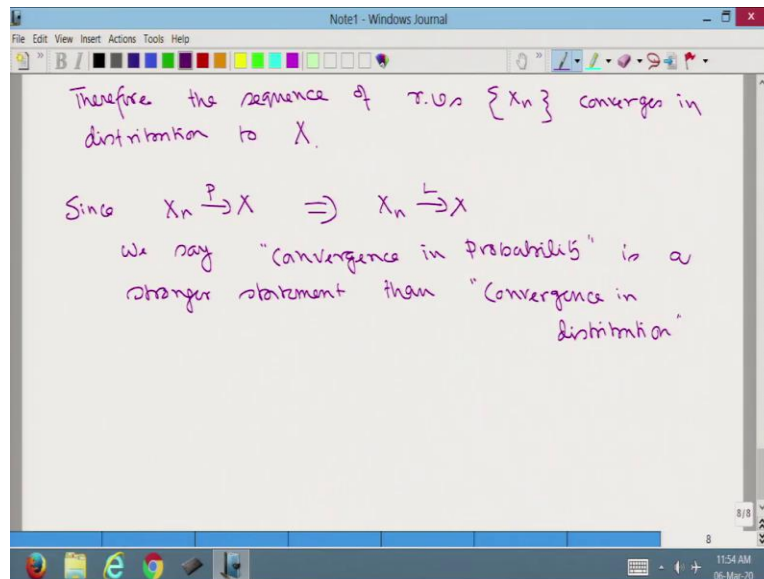 Note1 - Windows Journal
File Edit View Insert Actions Tools Help
B I
Therefore the sequence of r.vs {Xn} converges in
distribution to X.
Since Xn P→ X ⇒ Xn L→ X
We say "Convergence in Probability" is a
stronger statement than "Convergence in
distribution"
8/8
8
11:54 AM
06-Mar-20